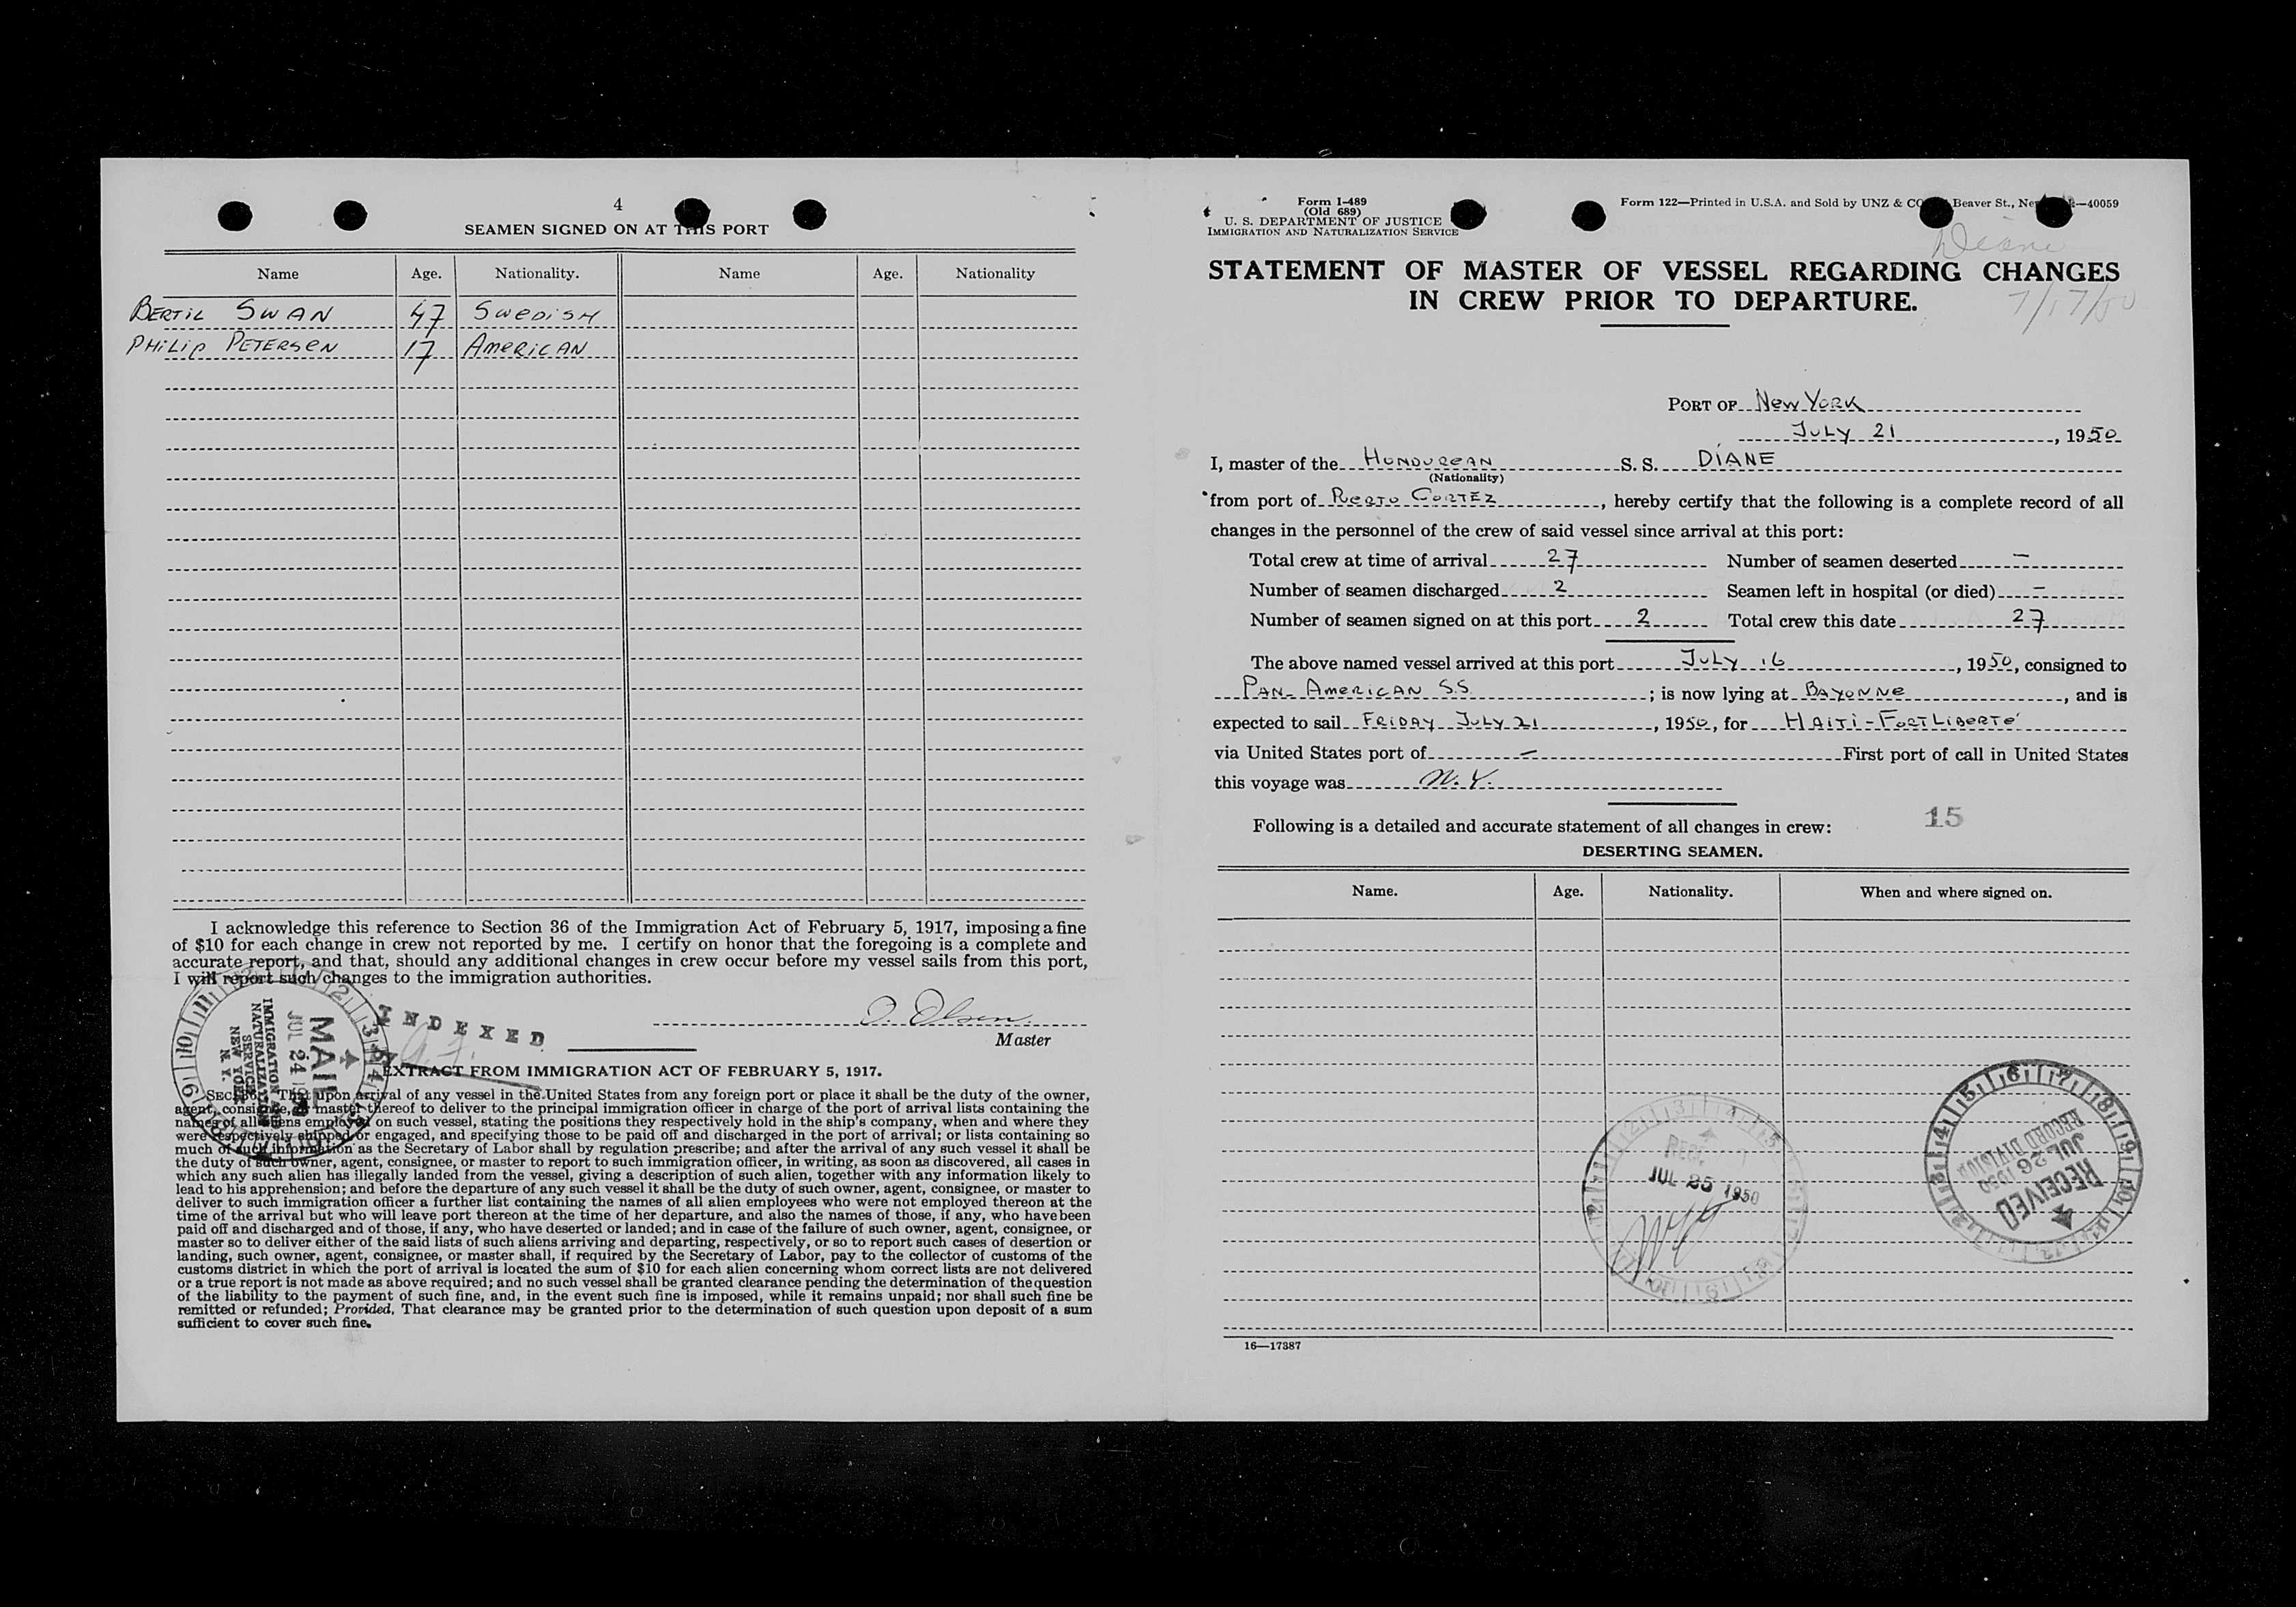 4
SEAMEN SIGNED ON AT THIS PORT
Name Age. Nationality. Name Age. Nationality
BERTIL SWAN 47 SWEDISH
PHILIP PETERSEN 17 AMERICAN
I acknowledge this reference to Section 36 of the Immigration Act of February 5, 1917, imposing a fine
of $10 for each change in crew not reported by me. I certify on honor that the foregoing is a complete and
accurate report, and that, should any additional changes in crew occur before my vessel sails from this port,
I will report such changes to the immigration authorities.
O. Olsen
Master
INDEXED
MAIL
JUL 24
IMMIGRATION AND
NATURALIZATION
SERVICE
NEW YORK
N. Y.
EXTRACT FROM IMMIGRATION ACT OF FEBRUARY 5, 1917.
SEC. 36. That upon arrival of any vessel in the United States from any foreign port or place it shall be the duty of the owner,
agent, consignee, or master thereof to deliver to the principal immigration officer in charge of the port of arrival lists containing the
names of all aliens employed on such vessel, stating the positions they respectively hold in the ship's company, when and where they
were respectively shipped or engaged, and specifying those to be paid off and discharged in the port of arrival; or lists containing so
much of such information as the Secretary of Labor shall by regulation prescribe; and after the arrival of any such vessel it shall be
the duty of such owner, agent, consignee, or master to report to such immigration officer, in writing, as soon as discovered, all cases in
which any such alien has illegally landed from the vessel, giving a description of such alien, together with any information likely to
lead to his apprehension; and before the departure of any such vessel it shall be the duty of such owner, agent, consignee, or master to
deliver to such immigration officer a further list containing the names of all alien employees who were not employed thereon at the
time of the arrival but who will leave port thereon at the time of her departure, and also the names of those, if any, who have been
paid off and discharged and of those, if any, who have deserted or landed; and in case of the failure of such owner, agent, consignee, or
master so to deliver either of the said lists of such aliens arriving and departing, respectively, or so to report such cases of desertion or
landing, such owner, agent, consignee, or master shall, if required by the Secretary of Labor, pay to the collector of customs of the
customs district in which the port of arrival is located the sum of $10 for each alien concerning whom correct lists are not delivered
or a true report is not made as above required; and no such vessel shall be granted clearance pending the determination of the question
of the liability to the payment of such fine, and, in the event such fine is imposed, while it remains unpaid; nor shall such fine be
remitted or refunded; Provided, That clearance may be granted prior to the determination of such question upon deposit of a sum
sufficient to cover such fine.
Form I-489
(Old 689)
U. S. DEPARTMENT OF JUSTICE
IMMIGRATION AND NATURALIZATION SERVICE
Form 122—Printed in U.S.A. and Sold by UNZ & CO Beaver St., Ne —40059
Diane
STATEMENT OF MASTER OF VESSEL REGARDING CHANGES
IN CREW PRIOR TO DEPARTURE.
7/17/50
PORT OF New York
July 21, 1950
I, master of the HONDUREAN S. S. DIANE
(Nationality)
from port of PUERTO CORTEZ, hereby certify that the following is a complete record of all
changes in the personnel of the crew of said vessel since arrival at this port:
Total crew at time of arrival 27 Number of seamen deserted –
Number of seamen discharged 2 Seamen left in hospital (or died) –
Number of seamen signed on at this port 2 Total crew this date 27
The above named vessel arrived at this port July 16, 1950, consigned to
PAN-AMERICAN S.S.; is now lying at BAYONNE, and is
expected to sail FRIDAY JULY 21, 1950, for HAITI - FORT LIBERTÉ
via United States port of – First port of call in United States
this voyage was N.Y.
15
Following is a detailed and accurate statement of all changes in crew:
DESERTING SEAMEN.
Name. Age. Nationality. When and where signed on.
JUL 25 1950
RECEIVED
JUL 26 1950
RECORD DIVISION
16—17387